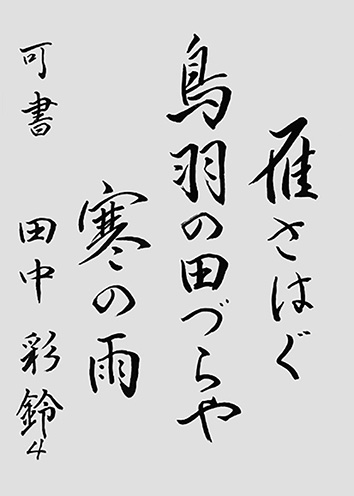 雁さはぐ
鳥羽の田づらや
寒の雨
可書 田中彩鈴4